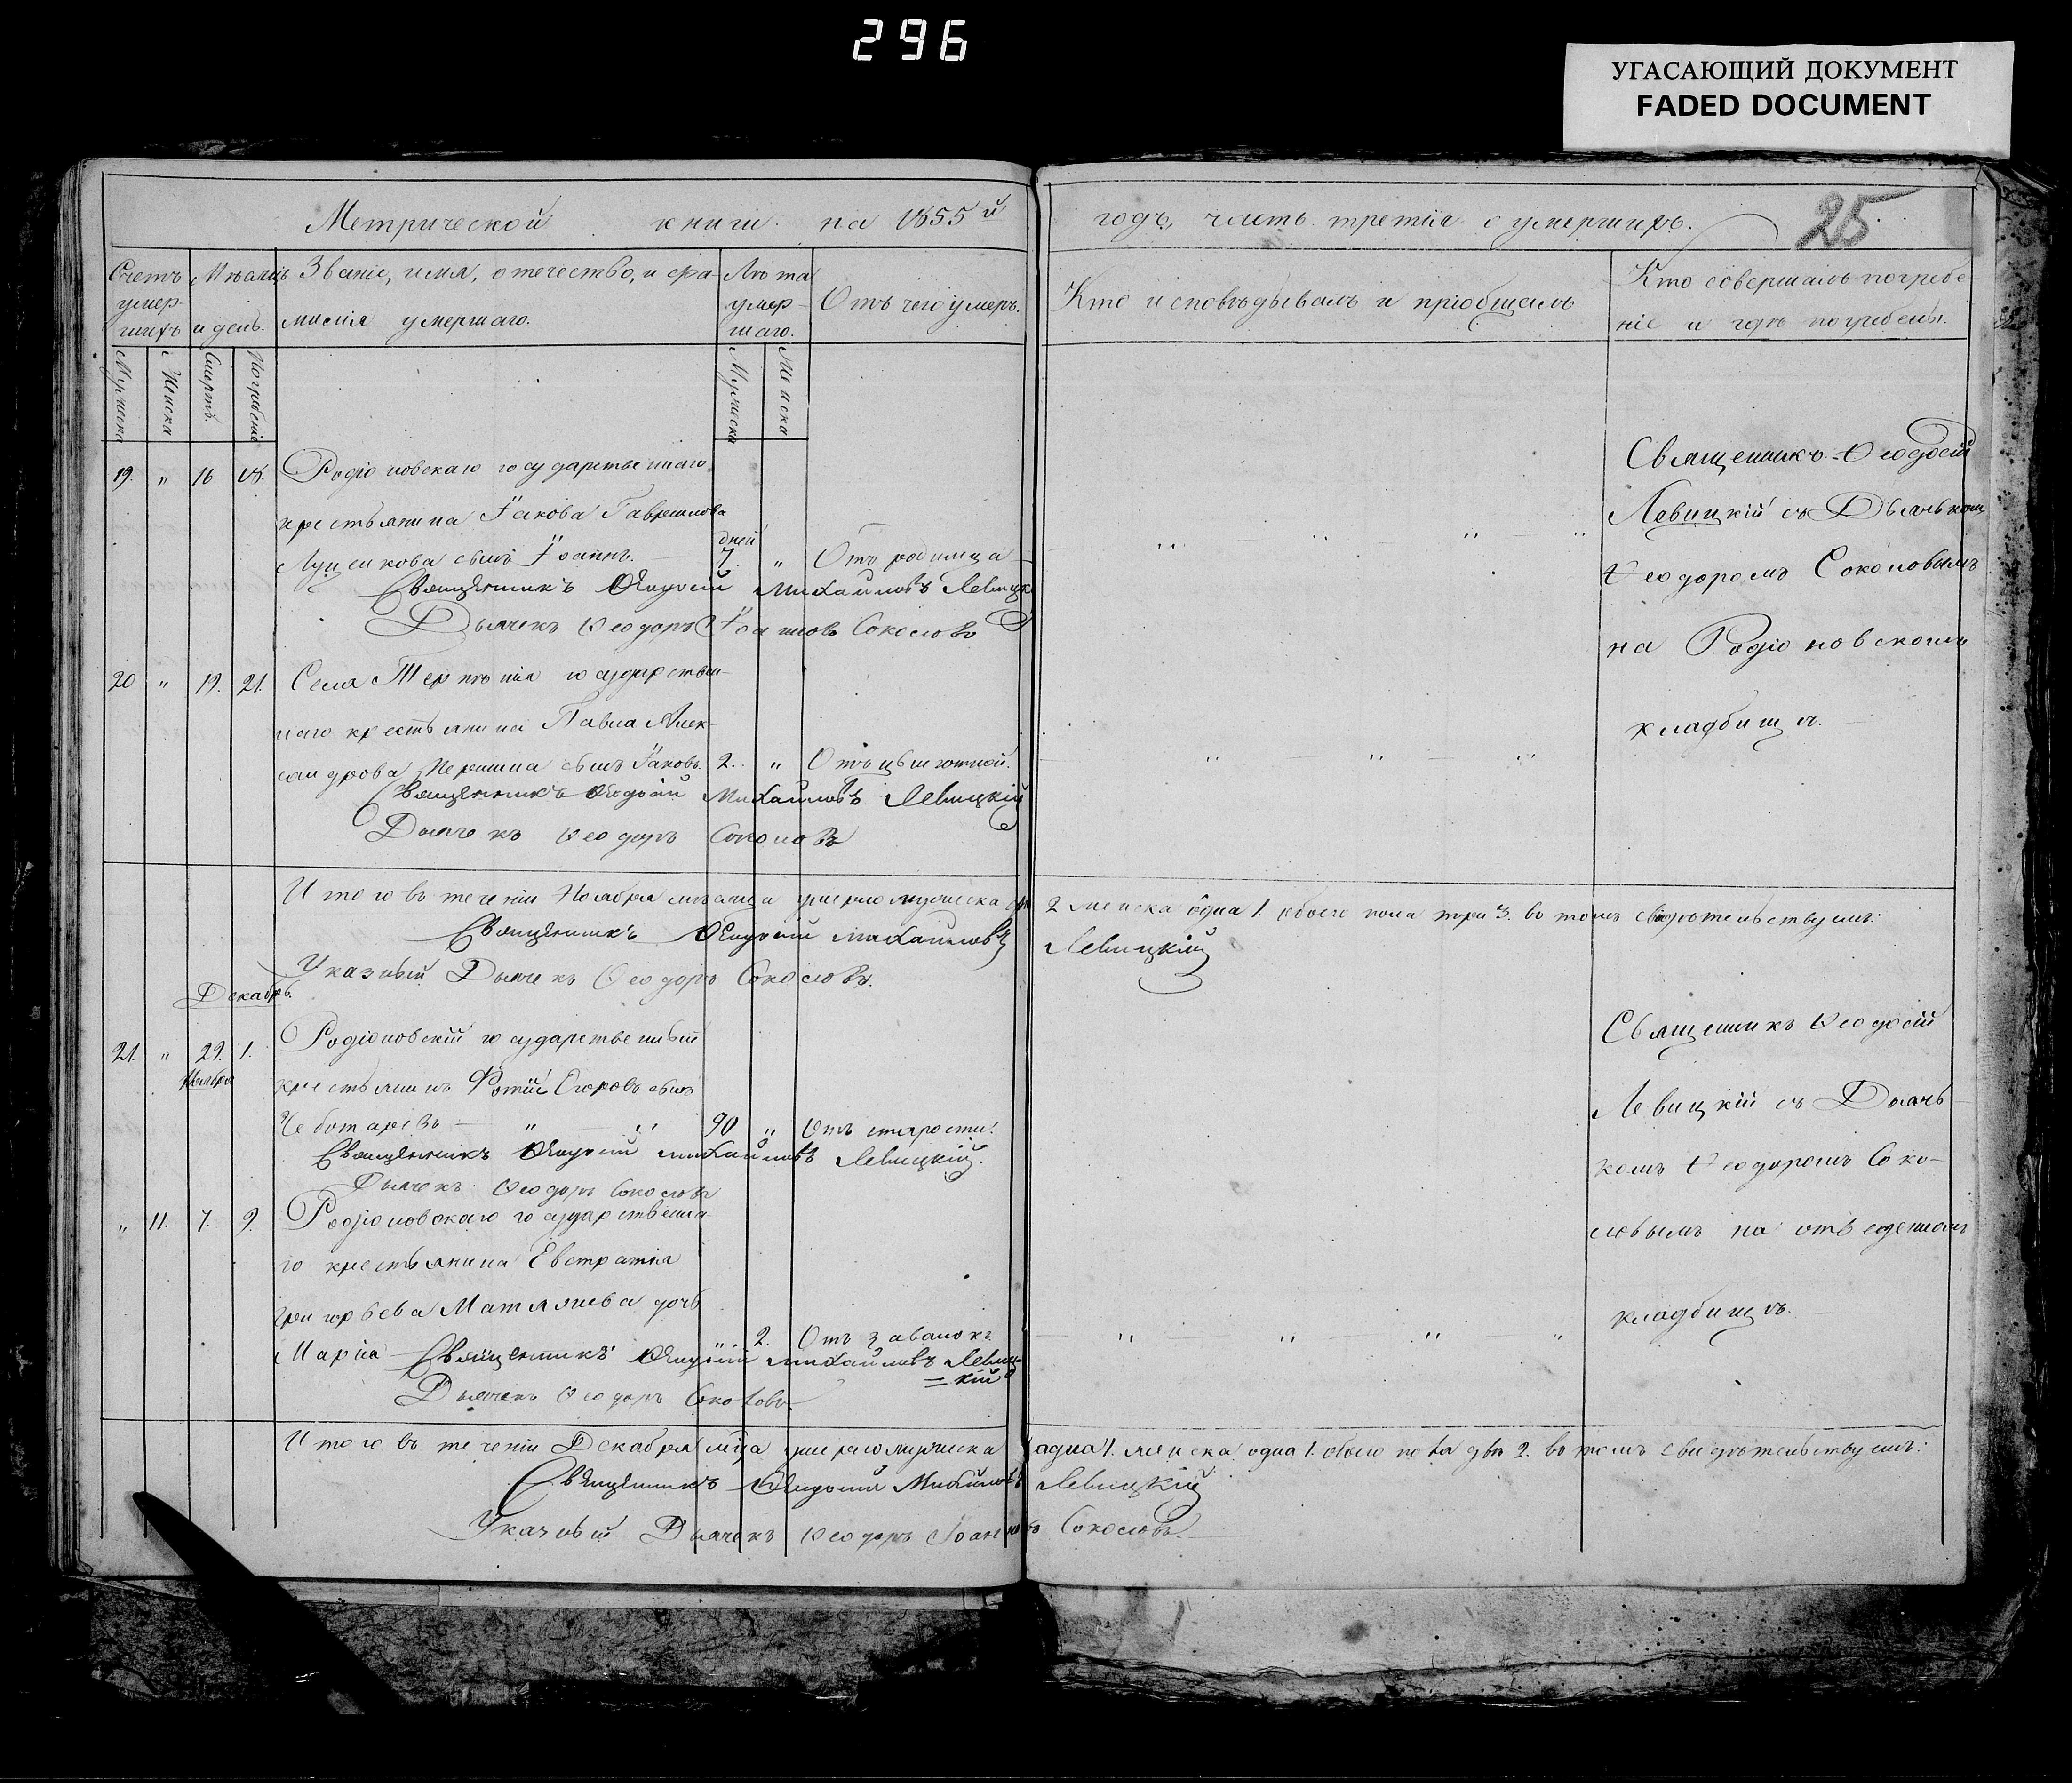 296
УГАСАЮЩИЙ ДОКУМЕНТ
FADED DOCUMENT
Метрической книги на 1855й годъ, часть третія о умершихъ.
25.
Счетъ умерших
Мѣсяцъ и день.
Званіе, имя, отечество, и фамилія умершаго.
Лѣта умершаго.
Отъ чего умеръ.
Кто исповѣдывалъ и пріобщалъ
Кто совершалъ погребеніе и гдѣ погребены.
Мужеска
Женска
Смерть.
Погребенія
Мужеска
Женска
19. " 16 18. Родіоновскаго государственнаго
крестьянина Іакова Гаврилова
сынъ Іоаннъ. дней 7. " Отъ родимца
Священникъ Ѳеодосій Михайловъ Левицкі
Дьячекъ Ѳеодоръ Іоанновъ Соколовъ
Священникъ Ѳеодосій
Левицкій съ Дьячькомъ
Ѳеодоромъ Соколовымъ
на Родіоновскомъ
кладбищѣ.
20 " 19. 21. Села Терпѣнія государствен-
наго крестьянина Павла Алек-
сандрова сынъ Іаковъ. 2. " Отъ
Священникъ Ѳеодосій Михайловъ Левицкій
Дьячокъ Ѳеодоръ Соколовъ
Итого въ теченіи Ноября мѣсяца умерло мужеска 2 женска одна 1. обоего пола три 3. въ томъ свидѣтельствуемъ:
Священникъ Ѳеодосій Михайловъ Левицкій
Указный Дьячекъ Ѳеодоръ Соколовъ.
Декабрь.
21. " 29. 1. Родіоновскій государственный
Ноября крестьянинъ Фотій Егоровъ сынъ
Чеботаревъ " " 90 " Отъ старости.
Священникъ Ѳеодосій Михайловъ Левицкій.
Дьячекъ Ѳеодоръ Соколовъ
Священникъ Ѳеодосій
Левицкій съ Дьячь-
комъ Ѳеодоромъ Соко-
ловымъ на отведенномъ
кладбищѣ.
" 11. 7. 9. Родіоновскаго государственна-
го крестьянина Евстратія
Григорьева дочь
Марія " 2. Отъ завалокъ
Священникъ Ѳеодосій Михайловъ Левиц-
=кій
Дьячекъ Ѳеодоръ Соколовъ
Итого въ теченіи Декабря мца умерло мужеска одна 1. женска одна 1. обоего пола два 2. въ томъ свидѣтельствуемъ:
Священникъ Ѳеодосій Михайловъ Левицкій
Указный Дьячекъ Ѳеодоръ Іоанновъ Соколовъ.